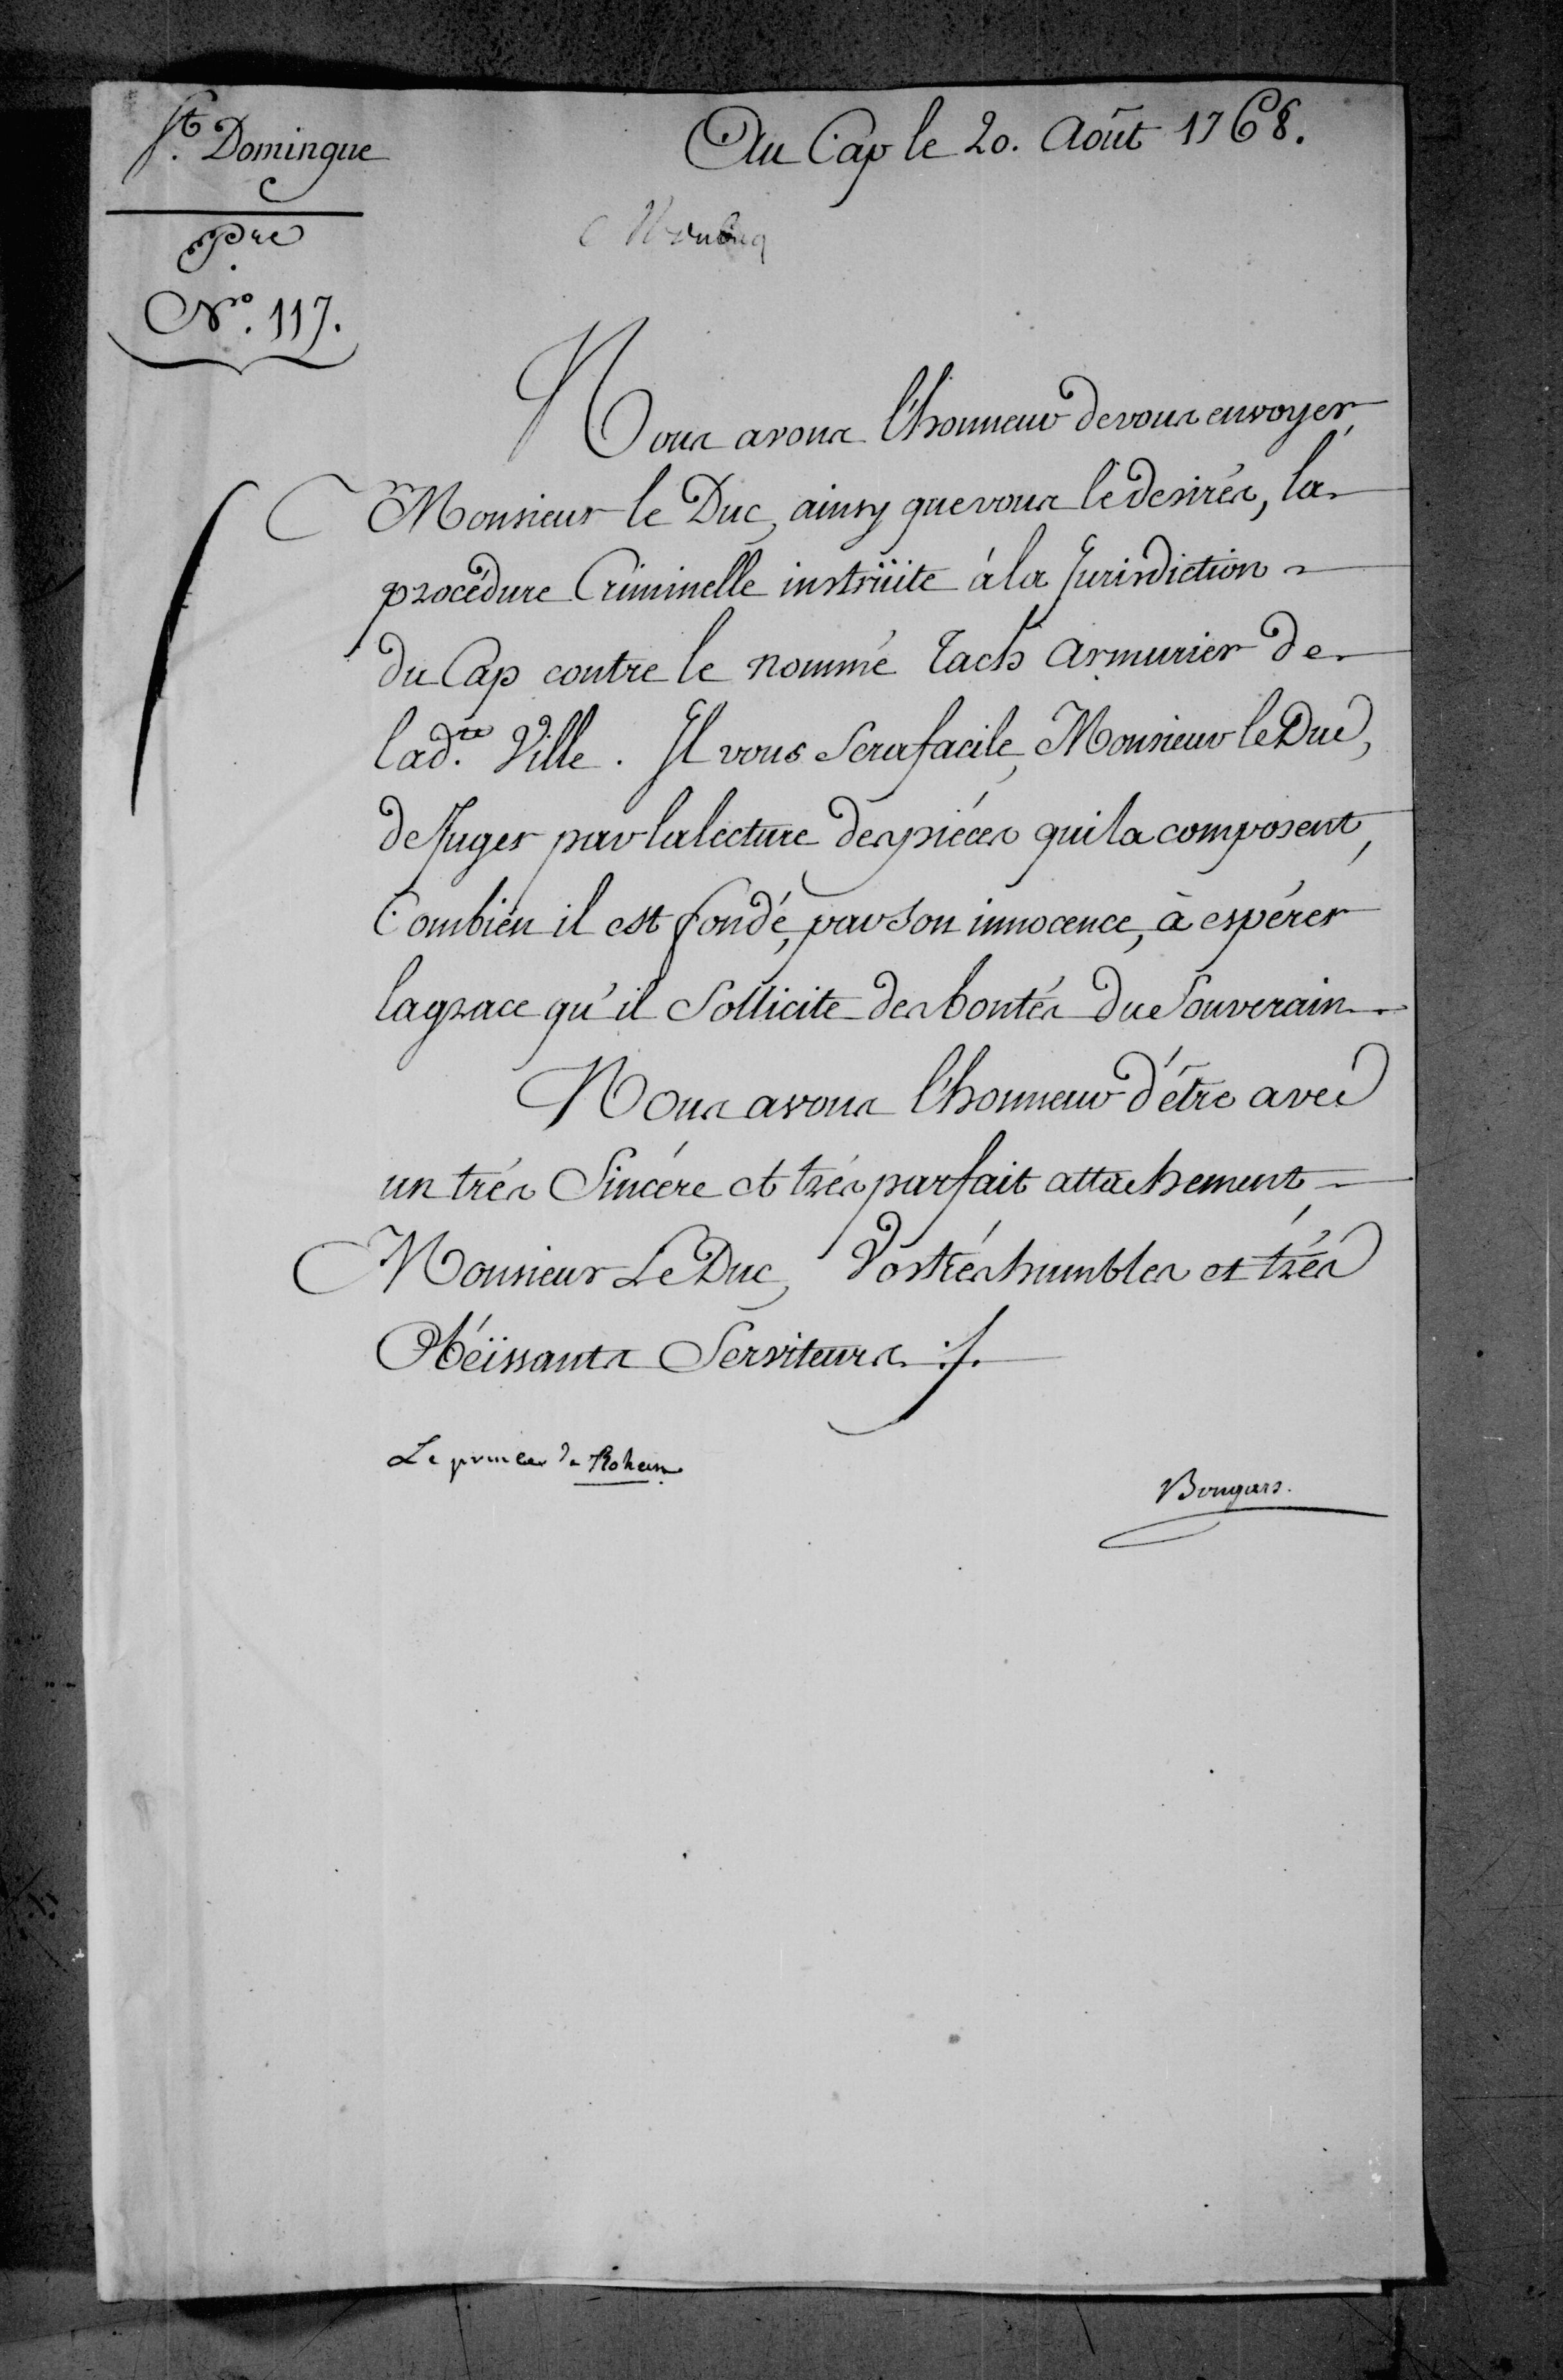 St. Domingue
Au Cap le 20. Août 1768.
No. 117.
Nous avons l'honneur de vous envoyer,
Monsieur le Duc, ainsy que vous le desirés, la
procédure Criminelle instrüite à la Jurisdiction
du Cap contre le nommé Tach Armurier de
lad.te Ville. Il vous Sera facile, Monsieur le Duc,
de Juger par la lecture des piéces qui la composent,
Combien il est fondé, par Son innocence, à espérer
la grace qu'il Sollicite des bontés du Souverain.
Nous avons l'honneur d'être avec
un trés Sincére et trés parfait attachement,
Monsieur Le Duc, Vos trés humbles et trés
Obéïssants Serviteurs ./.
Le prince de Rohan
Bongars.